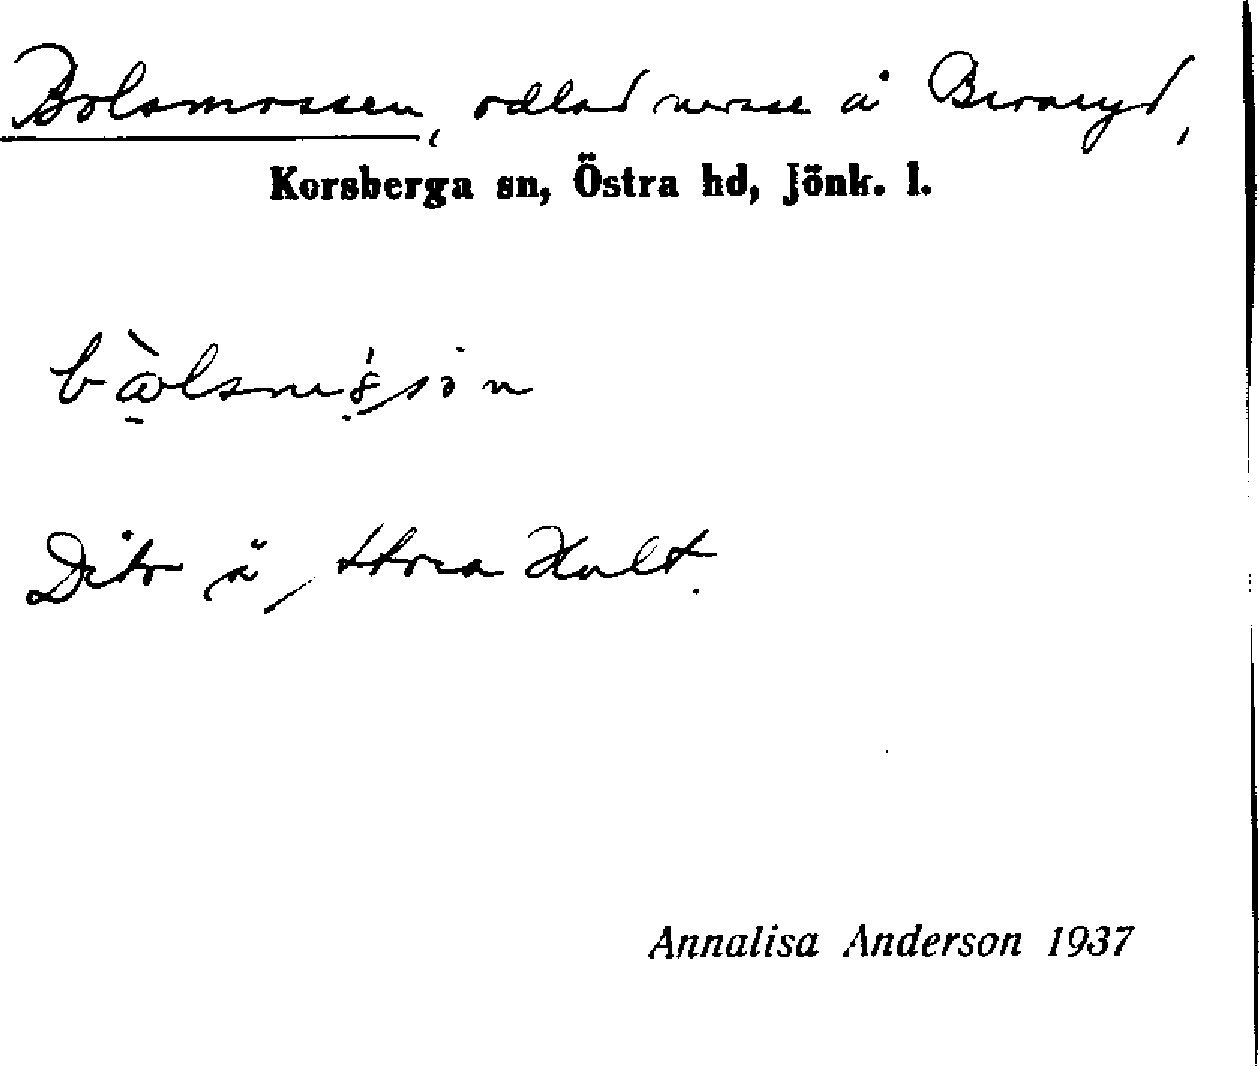 Bolsmossen, odlad mosse å
Korsberga sn, Östra hd, Jönk. l.
Dito å Stora Holt.
Annalisa Anderson 1937